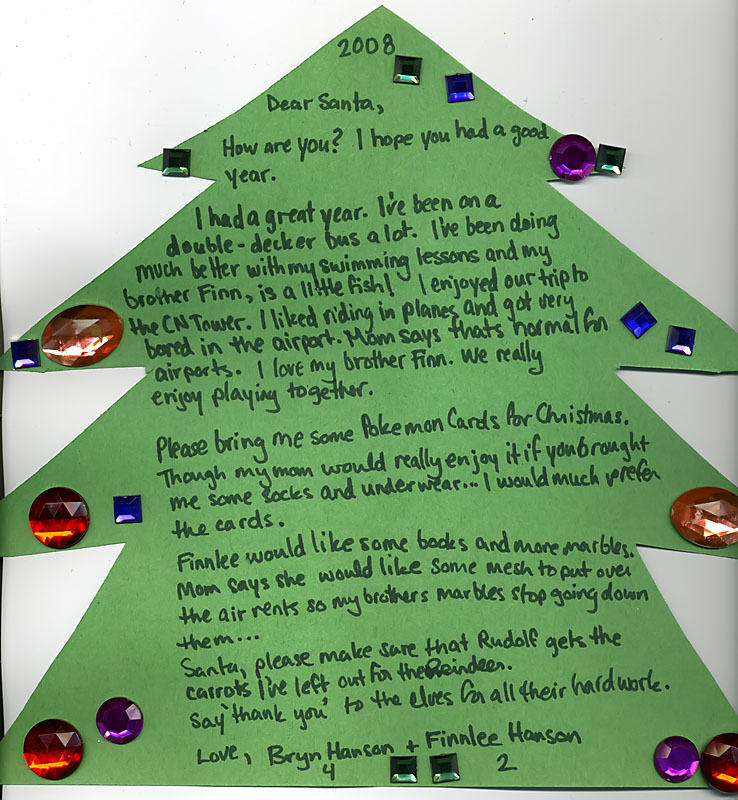 2008
Dear Santa,
How are you? I hope you had a good
year.
I had a great year. I've been on a
double-decker bus a lot. I've been doing
much better with my swimming lessons and my
brother Finn, is a little fish! I enjoyed our trip to
the CN Tower. I liked riding in planes and got very
bored in the airport. Mom says thats normal for
airports. I love my brother Finn. We really
enjoy playing together.
Please bring me some Pokemon Cards for Christmas.
Though my mom would really enjoy it if you brought
me some socks and underwear... I would much prefer
the cards.
Finnlee would like some books and more marbles.
Mom says she would like some mesh to put over
the air vents so my brothers marbles stop going down
them...
Santa, please make sure that Rudolf gets the
carrots I've left out for the Reindeer.
Say 'thank you' to the elves for all their hard work.
Love, Bryn Hanson + Finnlee Hanson
4 2